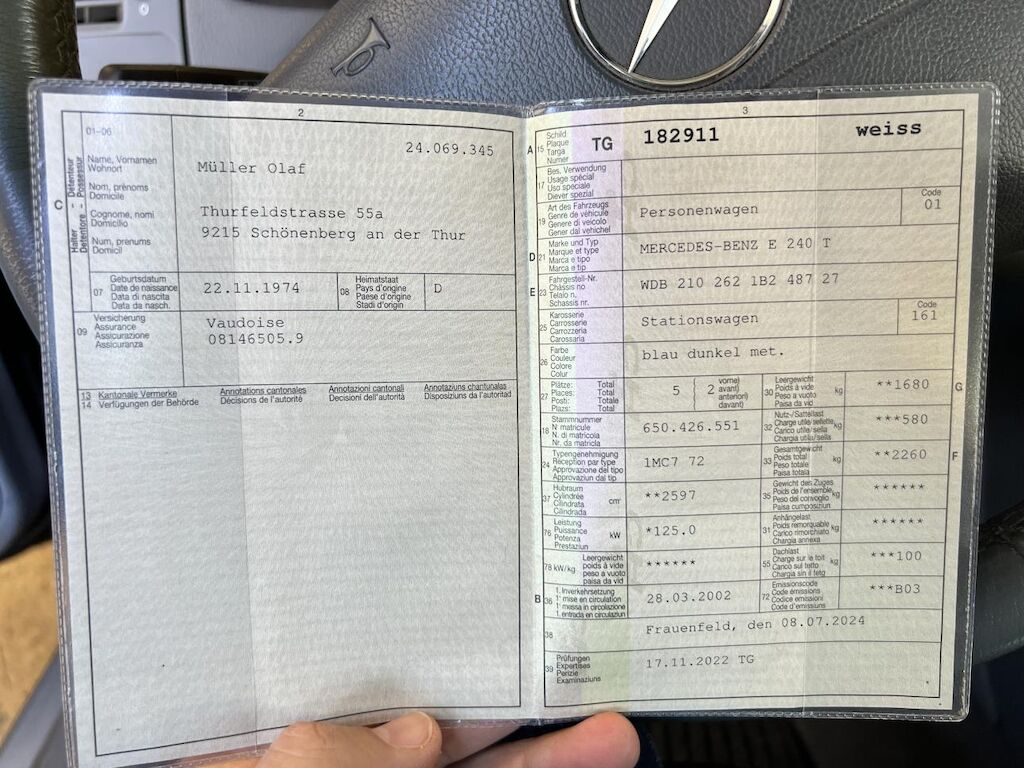 2
01-06
24.069.345
C
Halter - Détenteur
Detentore - Possessur
Name, Vornamen
Wohnort
Nom, prénoms
Domicile
Cognome, nomi
Domicilio
Num, prenums
Domicil
Müller Olaf
Thurfeldstrasse 55a
9215 Schönenberg an der Thur
07
Geburtsdatum
Date de naissance
Data di nascita
Data da nasch.
22.11.1974
08
Heimatstaat
Pays d'origine
Paese d'origine
Stadi d'origin
D
09
Versicherung
Assurance
Assicurazione
Assicuranza
Vaudoise
08146505.9
13 Kantonale Vermerke
14 Verfügungen der Behörde
Annotations cantonales
Décisions de l'autorité
Annotazioni cantonali
Decisioni dell'autorità
Annotaziuns chantunalas
Disposiziuns da l'autoritad
3
A
15
Schild
Plaque
Targa
Numer
TG 182911 weiss
17
Bes. Verwendung
Usage spécial
Uso speciale
Diever spezial
19
Art des Fahrzeugs
Genre de véhicule
Genere di veicolo
Gener dal vehichel
Personenwagen
Code
01
D
21
Marke und Typ
Marque et type
Marca e tipo
Marca e tip
MERCEDES-BENZ E 240 T
E
23
Fahrgestell-Nr.
Châssis no
Telaio n.
Schassis nr.
WDB 210 262 1B2 487 27
25
Karosserie
Carrosserie
Carrozzeria
Carossaria
Stationswagen
Code
161
26
Farbe
Couleur
Colore
Colur
blau dunkel met.
27
Plätze: Total
Places: Total
Posti: Totale
Plazs: Total
5
2
vorne)
avant)
anteriori)
davant)
30
Leergewicht
Poids à vide
Peso a vuoto
Paisa da vid
kg
**1680
G
18
Stammnummer
N matricule
N. di matricola
Nr. da matricla
650.426.551
32
Nutz-/Sattellast
Charge utile/sellette
Carico utile/sella
Chargia utila/sella
kg
***580
24
Typengenehmigung
Réception par type
Approvazione del tipo
Approvaziun dal tip
1MC7 72
33
Gesamtgewicht
Poids total
Peso totale
Paisa totala
kg
**2260
F
37
Hubraum
Cylindrée
Cilindrata
Cilindrada
cm³
**2597
35
Gewicht des Zuges
Poids de l'ensemble
Peso del convoglio
Paisa cumposiziun
kg
******
76
Leistung
Puissance
Potenza
Prestaziun
kW
*125.0
31
Anhängelast
Poids remorquable
Carico rimorchiato
Chargia annexa
kg
******
78 kW/kg
Leergewicht
poids à vide
peso a vuoto
paisa da vid
******
55
Dachlast
Charge sur le toit
Carico sul tetto
Chargia sin il tetg
kg
***100
B
36
1. Inverkehrsetzung
1ᵉ mise en circulation
1ᵃ messa in circolazione
1. entrada en circulaziun
28.03.2002
72
Emissionscode
Code émissions
Codice emissioni
Code d'emissiuns
***B03
38
Frauenfeld, den 08.07.2024
39
Prüfungen
Expertises
Perizie
Examinaziuns
17.11.2022 TG